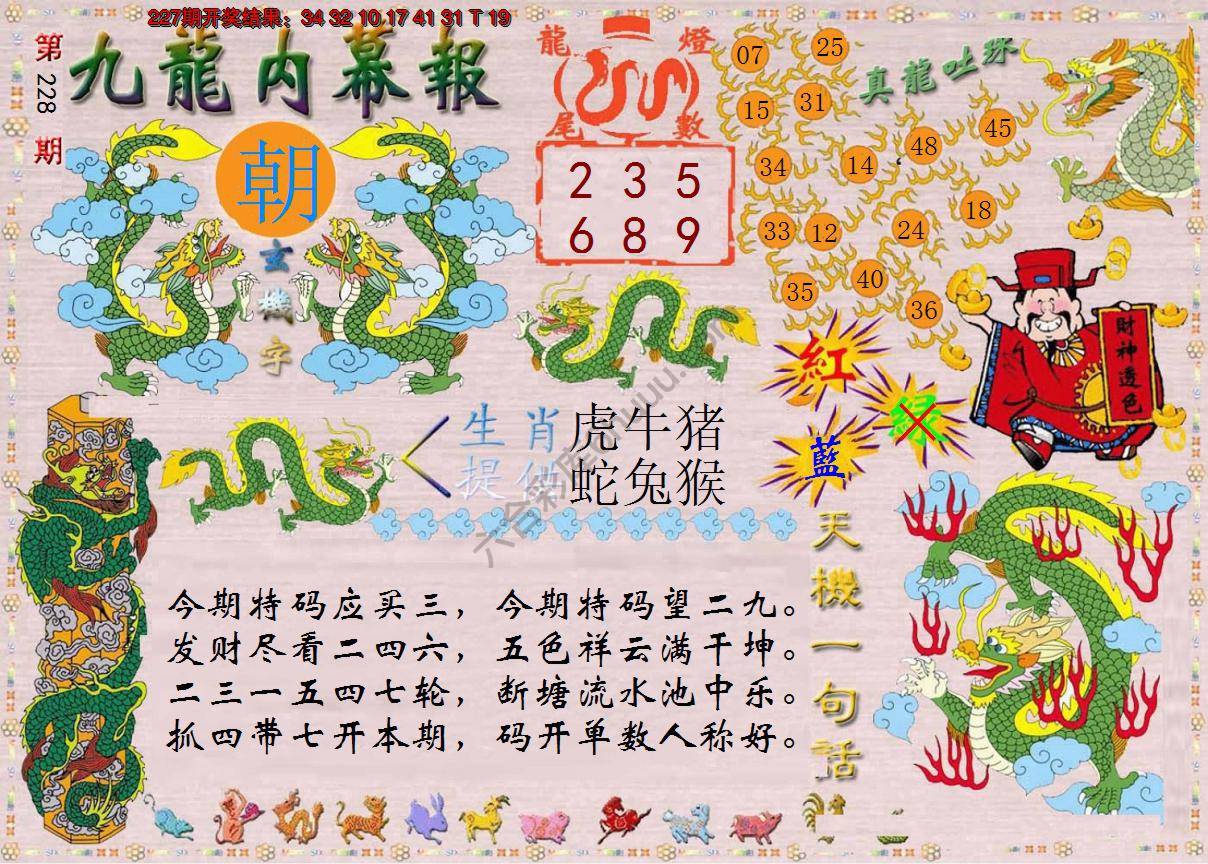 227期开奖结果：34 32 10 17 41 31 T 19
第228期
九龍内幕報
朝
玄機字
龍燈
尾數
2 3 5
6 8 9
真龍吐珠
07
25
15
31
34
14
48
45
33
12
24
18
35
40
36
財神透色
紅
绿
藍
生肖 虎牛猪
提供 蛇兔猴
天機一句话
今期特码应买三，今期特码望二九。
发财尽看二四六，五色祥云满干坤。
二三一五四七轮，断塘流水池中乐。
抓四带七开本期，码开单数人称好。